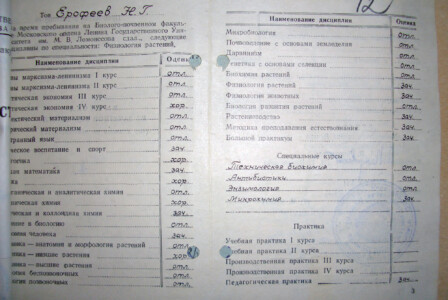 Тов Ерофеев Н Г
за время пребывания на Биолого-почвенном факуль-
Московского ордена Ленина Государственного Уни-
им. М. В. Ломоносова сдал, следующие
по специальности: Физиология растений,
Наименование дисциплин Оценка
марксизма-ленинизма I курс отл.
марксизма-ленинизма II курс отл.
экономия III курс отл.
экономия IV курс хор.
материализм отл.
материализм отл.
язык отл.
воспитание и спорт зач.
хор.
математика зач.
хор.
и аналитическая химия отл.
химия хор.
и коллоидная химия отл.
в биологию отл.
человека зач.
анатомия и морфология растений отл.
низшие растения хор.
высшие растения отл.
беспозвоночных отл.
позвоночных отл.
12
Наименование дисциплин Оценка
Микробиология отл.
Почвоведение с основами земледелия отл.
Дарвинизм отл.
Генетика с основами селекции отл.
Биохимия растений отл.
Физиология растений зач.
Физиология животных зач.
Биология развития растений отл.
Растениеводство зач.
Методика преподавания естествознания зач.
Большой практикум зач.
Специальные курсы
Техническая биохимия отл.
Антибиотики отл.
Энзимология отл.
Микрохимия зач.
Практика
Учебная практика I курса
Учебная практика II курса
Производственная практика III курса
Производственная практика IV курса
Педагогическая практика зач.
3